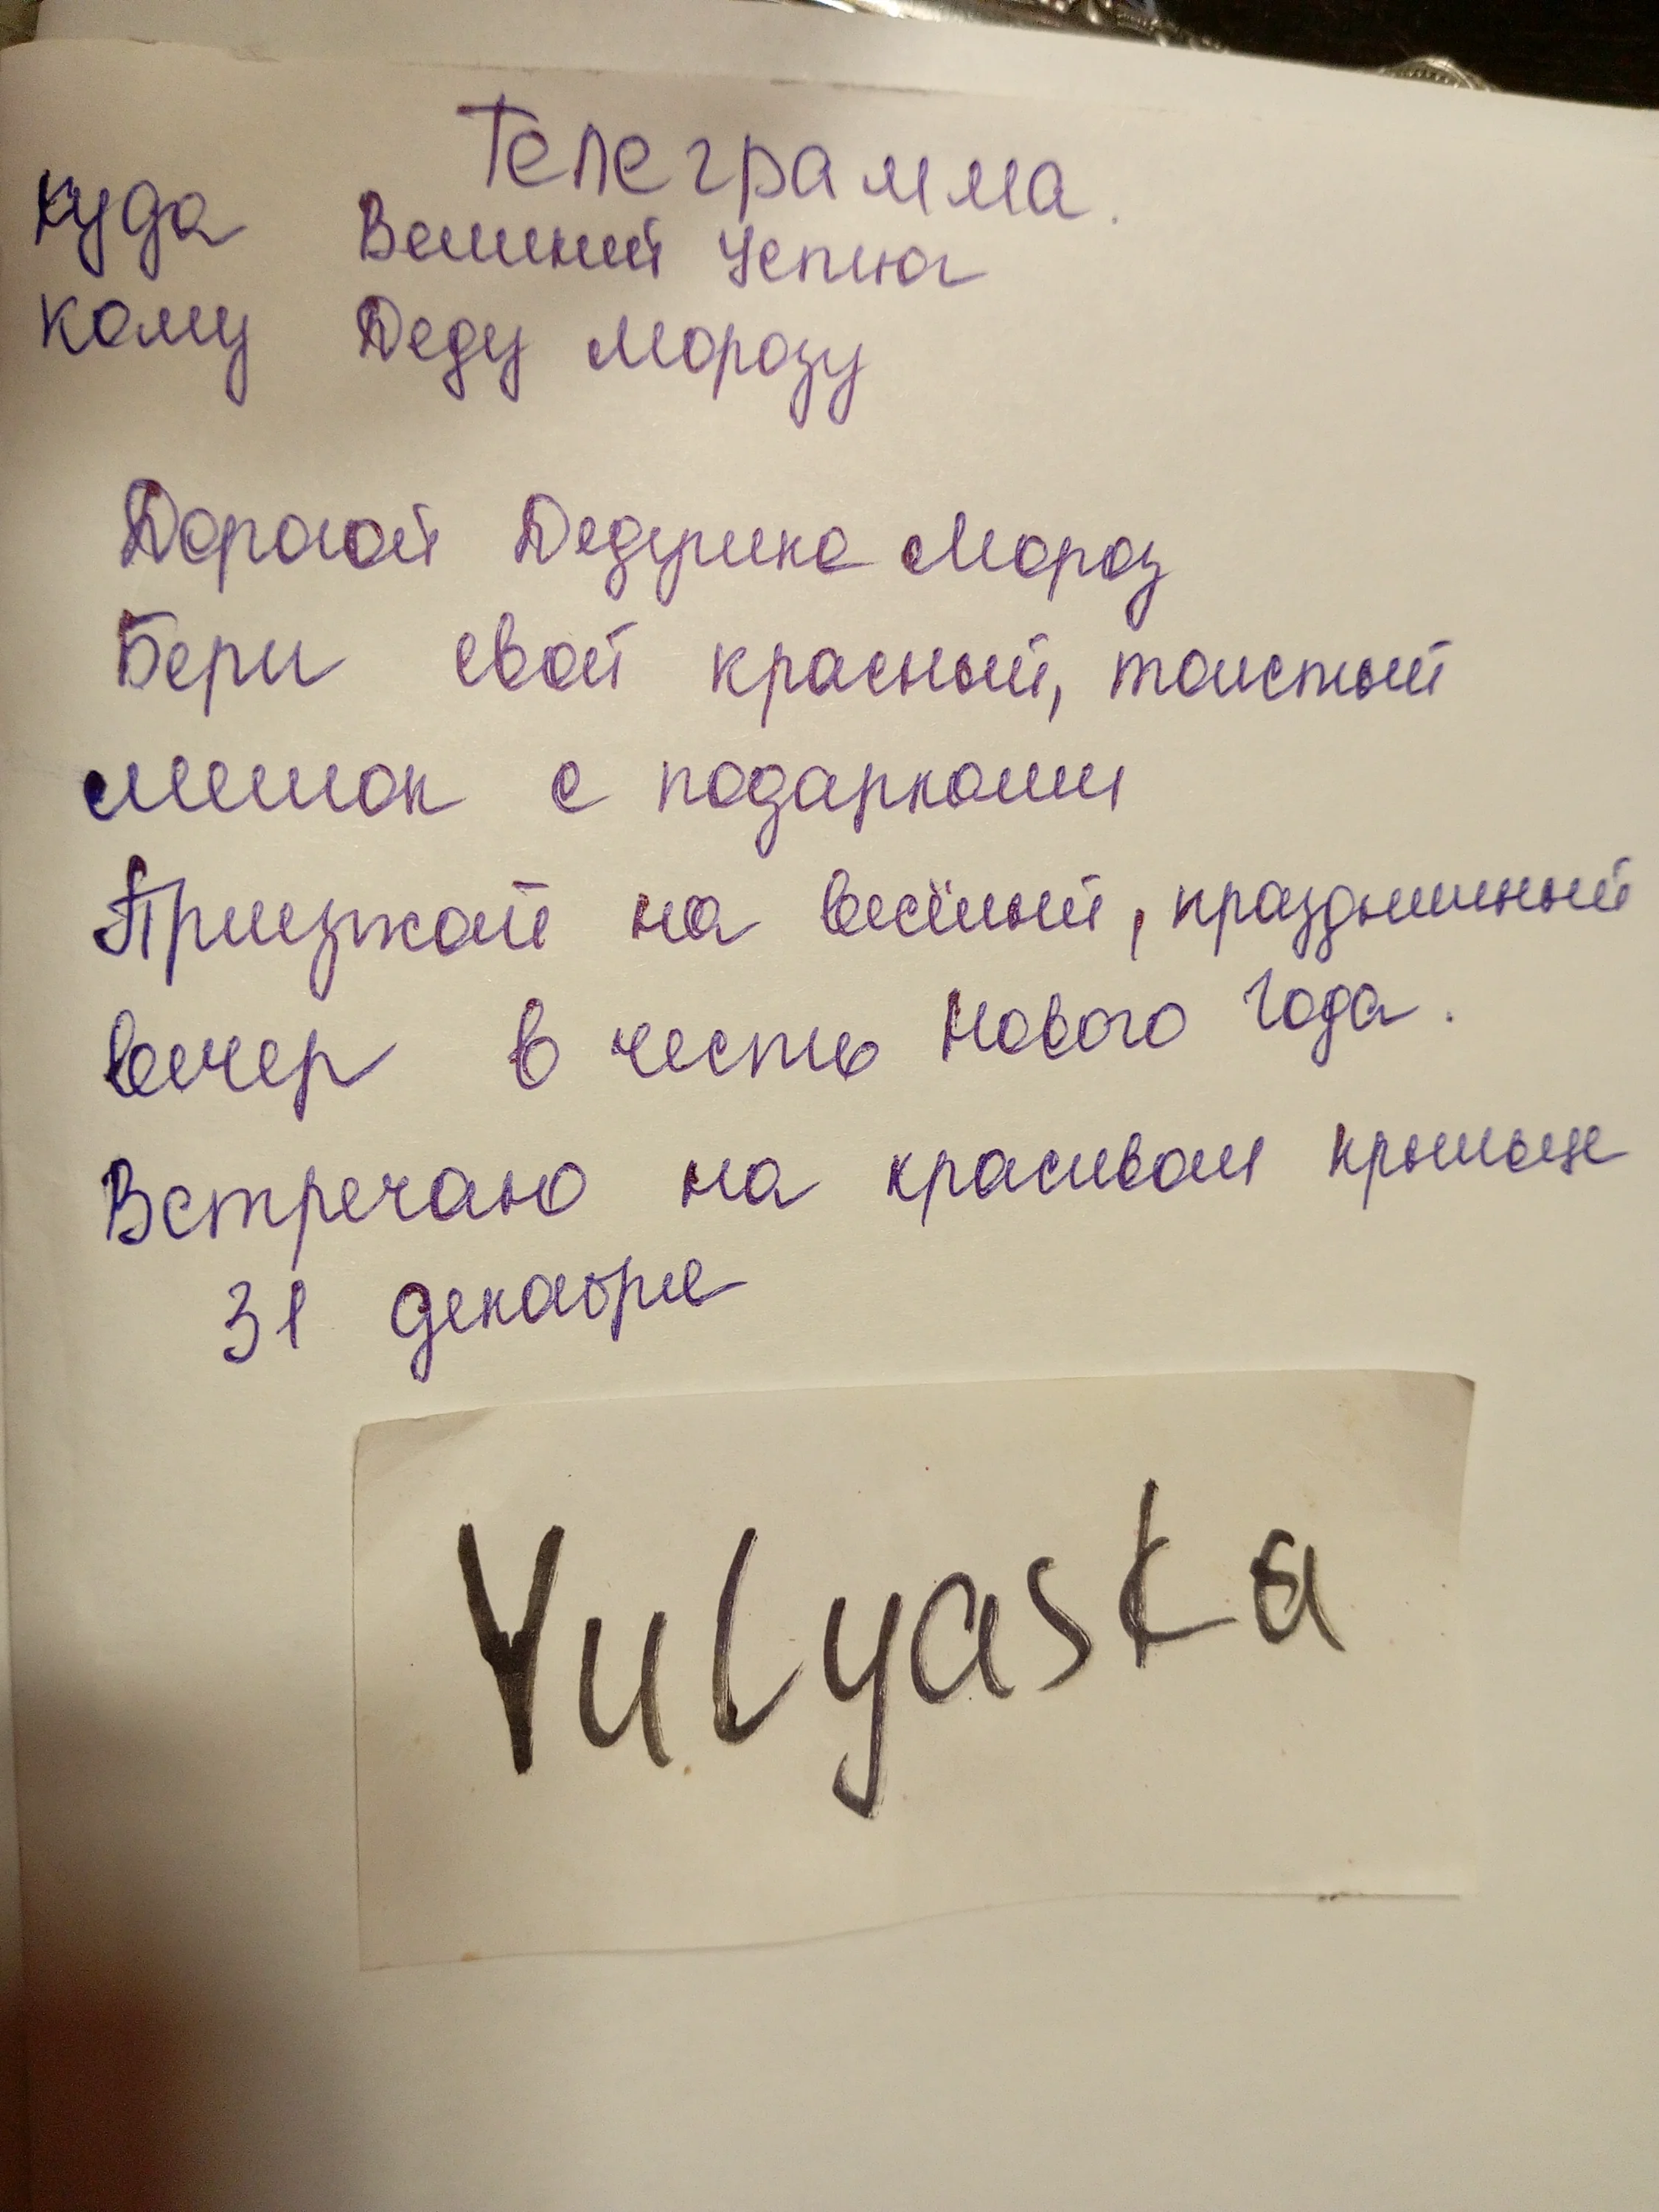 Телеграмма.
куда Великий Устюг
кому Деду Морозу
Дорогой Дедушка Мороз
Бери свой красный, толстый
мешок с подарками
Приезжай на весёлый, праздничный
вечер в честь Нового Года.
Встречаю на красивом крыльце
31 декабря
Yulyaska